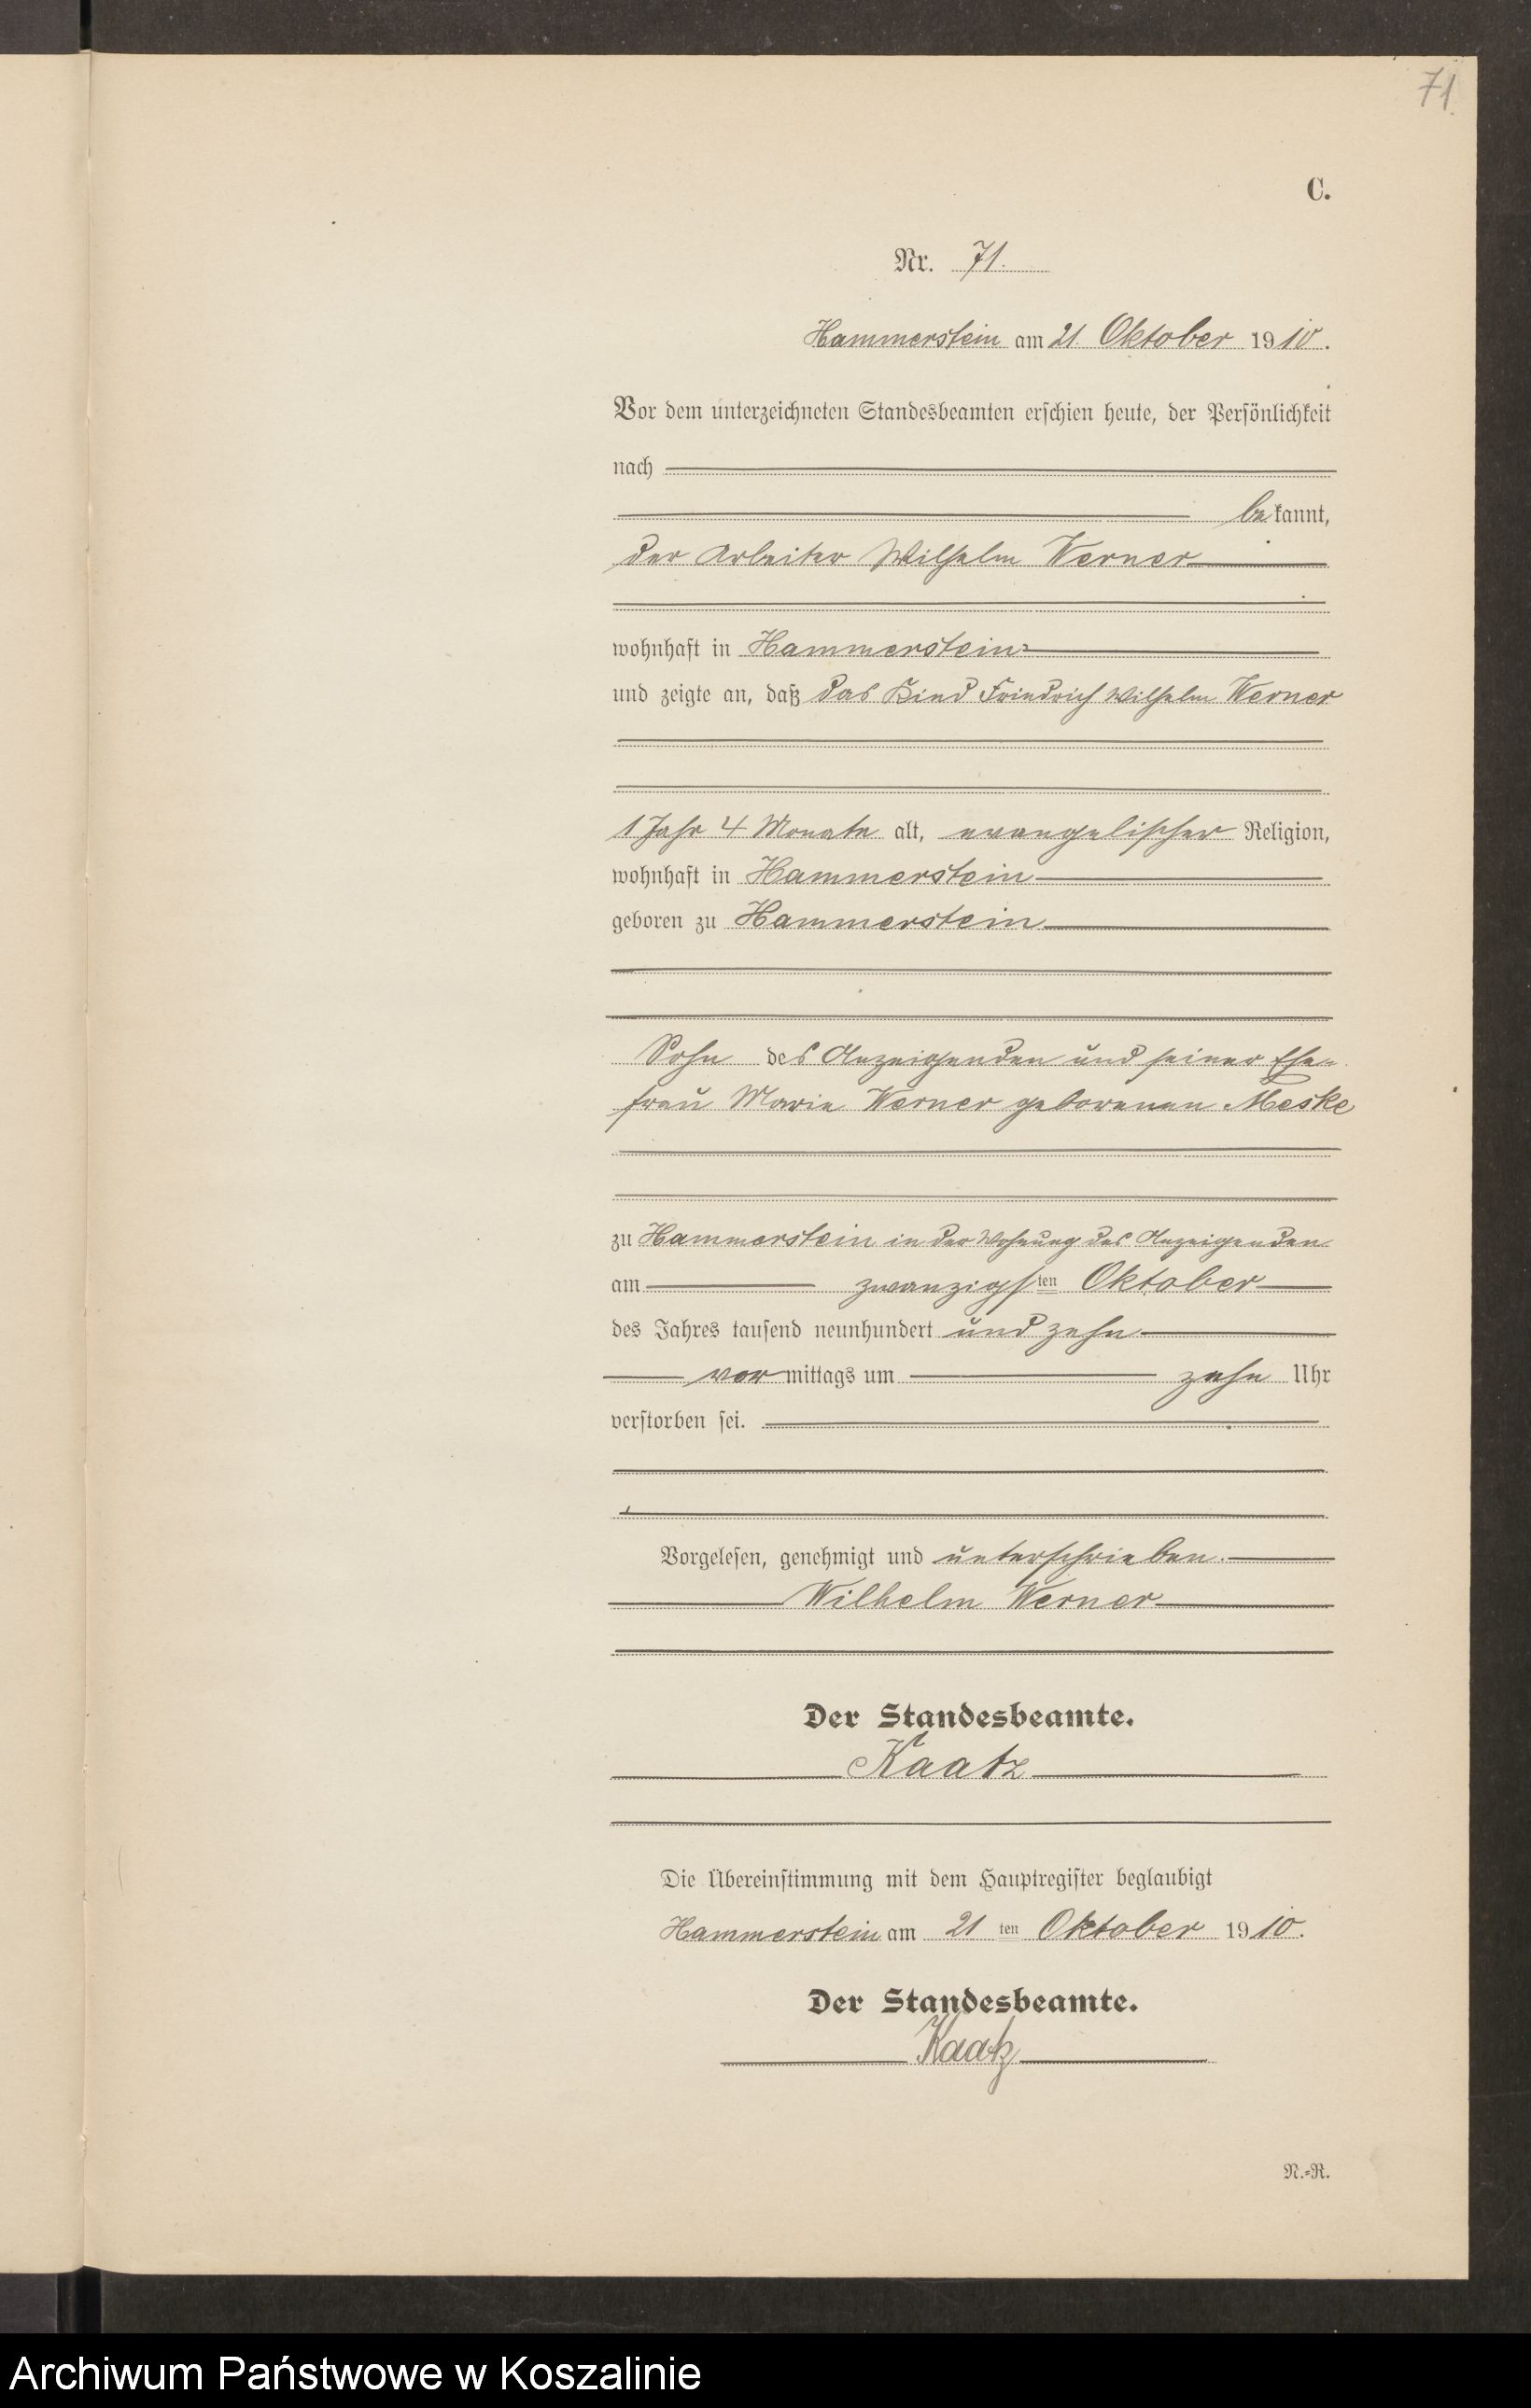 71
C.
Nr. 71.
Hammerstein am 21. Oktober 1910.
Vor dem unterzeichneten Standesbeamten erschien heute, der Persönlichkeit
nach
bekannt,
der Arbeiter Wilhelm Werner
wohnhaft in Hammerstein
und zeigte an, daß das Kind Friedrich Wilhelm Werner
1 Jahr 4 Monate alt, evangelischer Religion,
wohnhaft in Hammerstein
geboren zu Hammerstein
Sohn des Anzeigenden und seiner Ehe=
frau Marie Werner geborenen Meske
zu Hammerstein in der Wohnung des Anzeigenden
am zwanzigsten Oktober
des Jahres tausend neunhundert und zehn
vor mittags um zehn Uhr
verstorben sei.
Vorgelesen, genehmigt und unterschrieben.
Wilhelm Werner
Der Standesbeamte.
Kaatz
Die Übereinstimmung mit dem Hauptregister beglaubigt
Hammerstein am 21 ten Oktober 1910.
Der Standesbeamte.
Kaatz
N.=R.
Archiwum Państwowe w Koszalinie